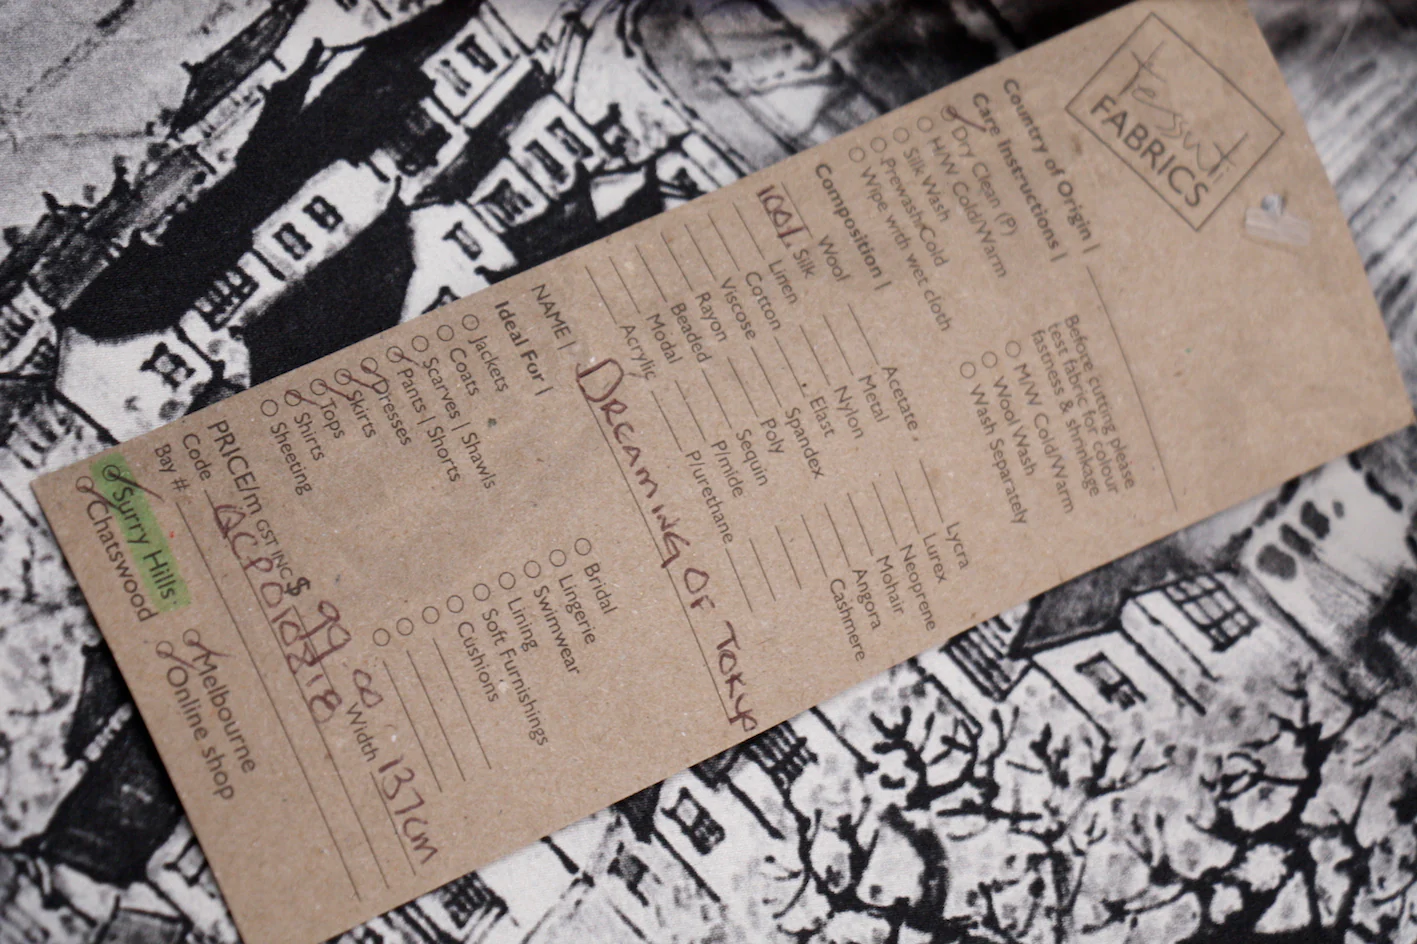 tessuti
FABRICS
Country of Origin |
Care Instructions |
Dry Clean (P)
H/W Cold/Warm
Silk Wash
Prewash Cold
Wipe with wet cloth
Before cutting please
test fabric for colour
fastness & shrinkage
M/W Cold/Warm
Wool Wash
Wash Separately
Composition |
Wool Acetate Lycra
100% Silk Metal Lurex
Linen Nylon Neoprene
Cotton Elast Mohair
Viscose Spandex Angora
Rayon Poly Cashmere
Beaded Sequin
Modal P/mide
Acrylic P/urethane
NAME | DREAMING OF TOKYO
Ideal For |
Jackets
Coats
Scarves | Shawls
Pants | Shorts
Dresses
Skirts
Tops
Shirts
Sheeting
Bridal
Lingerie
Swimwear
Lining
Soft Furnishings
Cushions
PRICE/m GST INC $ 99.00 Width 137cm
Code
Bay #
Surry Hills Melbourne
Chatswood Online shop